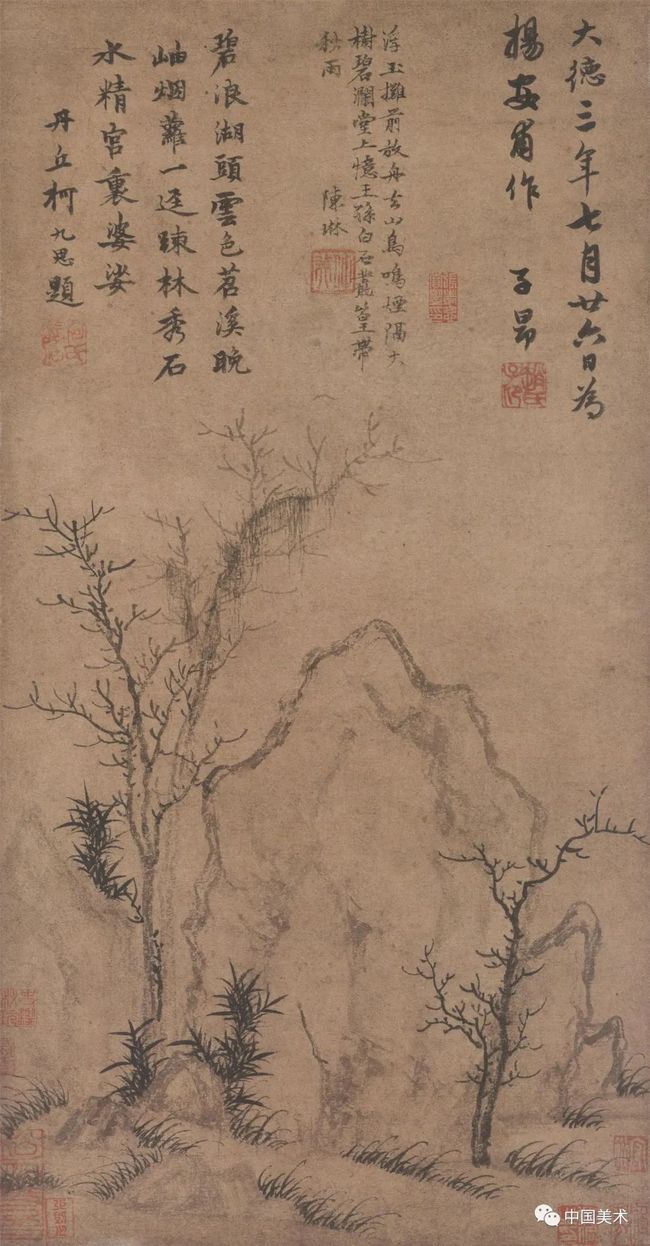 大德三年七月廿六日為
楊安甫作 子昂
趙氏子昂
浮玉攤前放舟去山鳥鳴煙隔大
樹碧瀾堂上憶王孫白石叢篁帶
秋雨 陳琳
碧浪湖頭雲色苕溪晚
岫烟蘿一逕踈林秀石
水精宮裏婆娑
丹丘柯九思題
中国美术